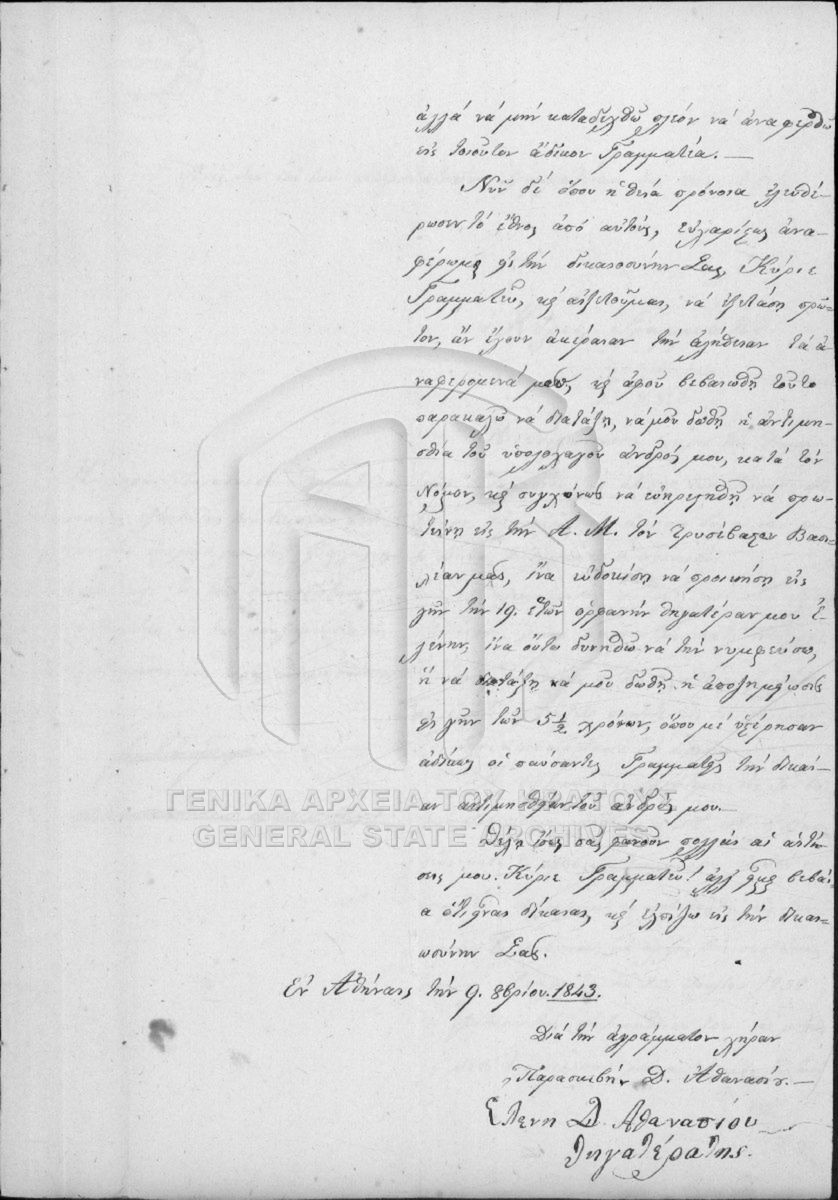 ἀλλά νά μήν καταδεχθῶ πλέον νά ἀναφερθῶ
εἰς τοιοῦτον ἄδικον Γραμματέα. —
Νῦν δέ ὅπου ἡ θεία πρόνοια ἐλευθέ-
ρωσεν τό ἔθνος ἀπό αὐτούς, εὐχαρίστως ἀνα-
φέρωμαι εἰς τήν δικαιοσύνην Σας, Κύριε
Γραμματεῦ, καί αἰτοῦμαι, νά ἐξετάσῃ πρῶ-
τον, ἄν ἔχουν ἀκέραιαν τήν ἀλήθειαν τά ἀ-
ναφερόμενά μου, καί ἀφοῦ βεβαιωθῇ τοῦτο
παρακαλῶ νά διατάξῃ, νά μοῦ δωθῇ ἡ ἀντιμι-
σθία τοῦ ὑπολοχαγοῦ ἀνδρός μου, κατά τόν
Νόμον, καί συγχρόνως νά εὐαρεστηθῇ νά προ-
τείνῃ εἰς τήν Α. Μ. τόν τρισέβαστον Βασι-
λέαν μας, ἵνα εὐδοκίσῃ νά προικήσῃ εἰς
γῆν τήν 19. ἐτῶν ὀρφανήν θηγατέραν μου Ἑ-
λένην, ἵνα οὕτω δυνηθῶ νά τήν νυμφεύσω,
ἤ νά διατάξῃ νά μοῦ δωθῇ ἡ ἀποζημίωσις
εἰς γῆν τῶν 5 1/2 χρόνων, ὅπου μέ ὑστέρησαν
ἀδίκως οἱ παύσαντες Γραμματεῖς τήν δικαί-
αν ἀντιμισθίαν τοῦ ἀνδρός μου. —
Θέλει ἴσως σας φανοῦν πολλαί αἱ αἰτή-
σεις μου. Κύριε Γραμματεῦ! ἀλλ' εἶμαι βεβαί-
α ὅτι εἶναι δίκαιαι, καί ἐλπίζω εἰς τήν δικαι-
ωσύνην Σας.
Ἐν Ἀθήναις τήν 9. 8βρίου. 1843.
Διά τήν ἀγράμματον χήραν
Παρασκευήν Δ. Ἀθανασίου. —
Ελενη Δ. Αθανασίου
θηγατέρα της.
ΓΕΝΙΚΑ ΑΡΧΕΙΑ ΤΟΥ ΚΡΑΤΟΥΣ
GENERAL STATE ARCHIVES